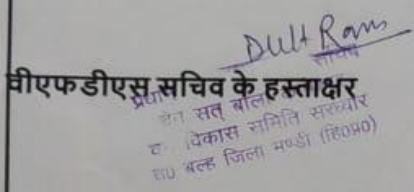 Dult Ram
सचिव
वीएफडीएस सचिव के हस्ताक्षर
प्रधान
सत् बाला
विकास समिति सरध्वार
बल्ह जिला मण्डी (हि0प्र0)